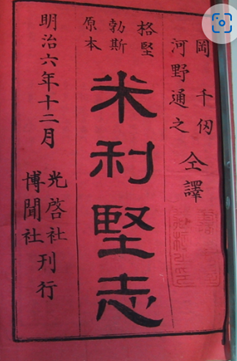 岡千仭
河野通之
仝譯
格堅
勃斯
原本
米利堅志
明治六年十二月
光啓社
博聞社
刊行